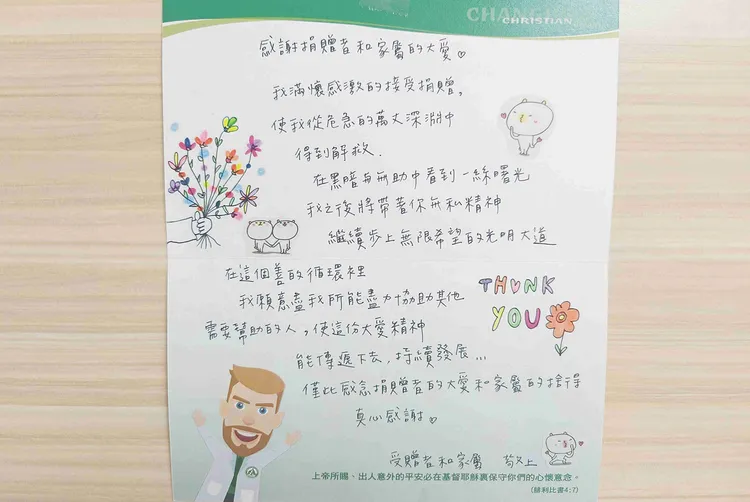 CHANG
CHRISTIAN
感謝捐贈者和家屬的大愛♡
我滿懷感激的接受捐贈,
使我從危急的萬丈深淵中
得到解救.
在黑暗與無助中看到一絲曙光
我之後將帶著你無私精神
繼續步上無限希望的光明大道
在這個善的循環裡
我願意盡我所能盡力協助其他
需要幫助的人,使這份大愛精神
能傳遞下去,持續發展...
僅此感念捐贈者的大愛和家屬的捨得
真心感謝♡
THANK
YOU
受贈者和家屬 敬上
上帝所賜、出人意外的平安必在基督耶穌裏保守你們的心懷意念。
(腓利比書4:7)